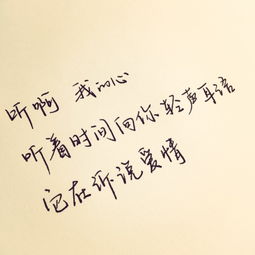 听啊 我的心
听着时间向你轻声耳语
它在诉说爱情